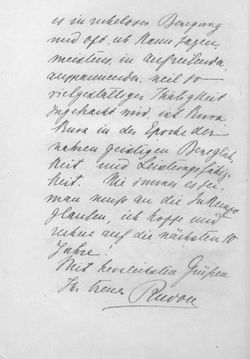 es in ruheloser Bewegung
und oft, ich kann sagen
meistens, in aufreibender
anspannender, weil so
vielgestaltiger Thätigkeit
zugebracht wird, ist kurz,
kurz in der Epoche der
wahren geistigen Beweglich-
keit und Leistungsfähig-
keit. Wie immer es sei,
man muss an die Zukunft
glauben, ich hoffe und
rechne auf die nächsten 10
Jahre!
Mit herzlichsten Grüßen
Ihr treuer